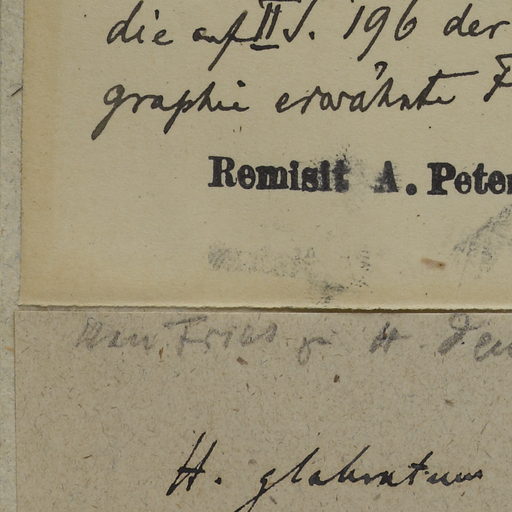 die auf II S. 196 der
graphie erwähnte F
Remisit A. Peter
Fries
H. glabratum